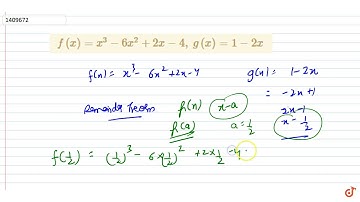 1409672
f (x) = x³ - 6x² + 2x - 4, g (x) = 1 - 2x
f(n) = x³ - 6x² + 2x - 4
g(n) = 1 - 2x
= -2x + 1
2x - 1
x - 1/2
Remainder Theorem
p(n)
x - a
p(a)
a = 1/2
f(1/2) = (1/2)³ - 6×(1/2)² + 2×1/2 - 4.